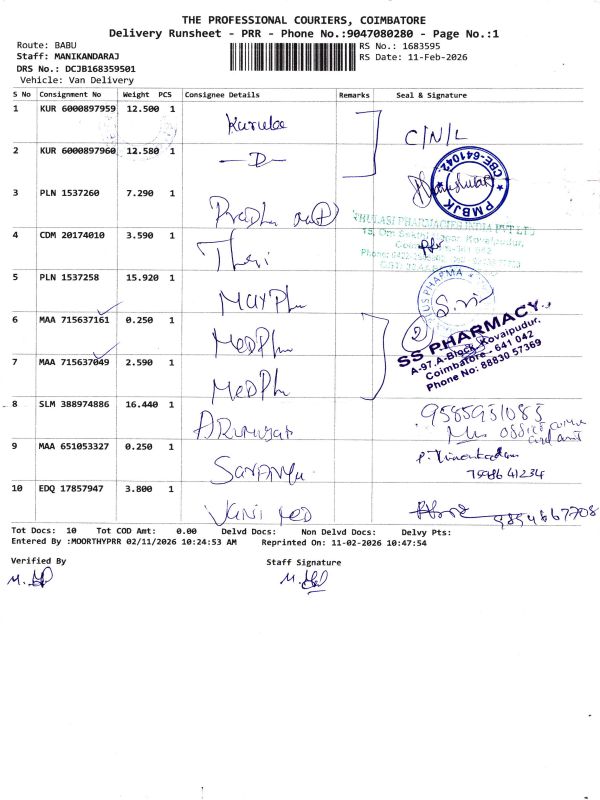 THE PROFESSIONAL COURIERS, COIMBATORE
Delivery Runsheet - PRR - Phone No.:9047080280 - Page No.:1
Route: BABU
Staff: MANIKANDARAJ
DRS No.: DCJB168359501
Vehicle: Van Delivery
RS No.: 1683595
RS Date: 11-Feb-2026
S No Consignment No Weight PCS Consignee Details Remarks Seal & Signature
1 KUR 6000897959 12.500 1 C/N/L
2 KUR 6000897960 12.580 1 - D -
CBE-641042
PMBJK
3 PLN 1537260 7.290 1
THULASI PHARMACIES INDIA PVT LTD
4 CDM 20174010 3.590 1
5 PLN 1537258 15.920 1 MaryPhu
PHARMA
6 MAA 715637161 0.250 1 MedPhu
2
SS PHARMACY
A-97, A-Block, Kovaipudur,
Coimbatore - 641 042
Phone No: 88830 57369
7 MAA 715637049 2.590 1 MedPhu
8 SLM 388974886 16.440 1 9585951085
office
9 MAA 651053327 0.250 1
75986 41234
10 EDQ 17857947 3.800 1 Vani Med
Tot Docs: 10 Tot COD Amt: 0.00 Delvd Docs: Non Delvd Docs: Delvy Pts:
Entered By :MOORTHYPRR 02/11/2026 10:24:53 AM Reprinted On: 11-02-2026 10:47:54
Verified By Staff Signature